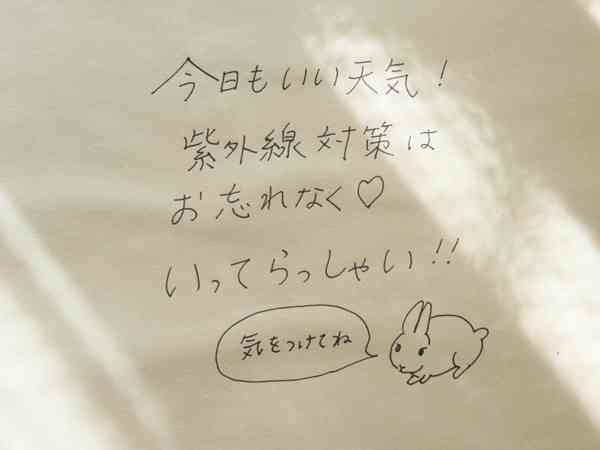 今日もいい天気!
紫外線対策は
お忘れなく♡
いってらっしゃい!!
気をつけてね